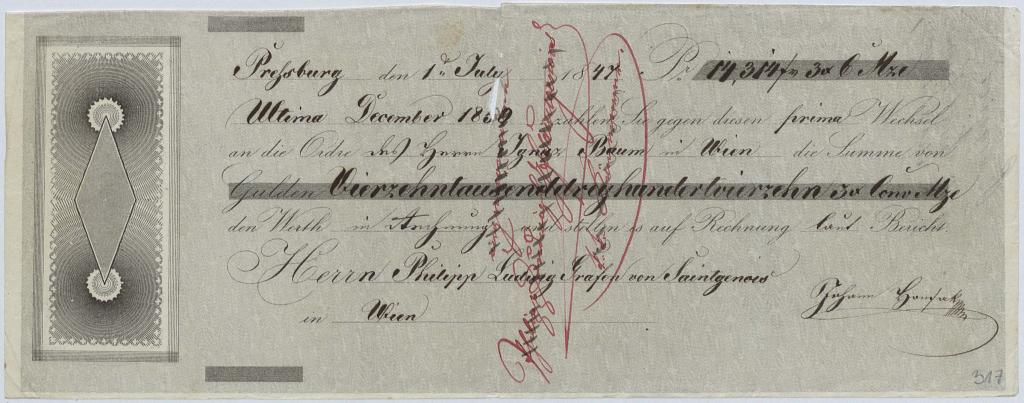 Preßburg den 1ᵗ July 1847. Pr 14,314 fr 3x C Mze
Ultima December 1859 zahlen Sie gegen diesen prima Wechsel
an die Ordre des Herrn Ignaz Baum in Wien die Summe von
Gulden Vierzehntausenddreyhundertvierzehn 3x Conv Mze
den Werth in Rechnung und stellen es auf Rechnung laut Bericht
Herrn Philipp Ludwig Grafen von Saintgenois
in Wien
Johann
317